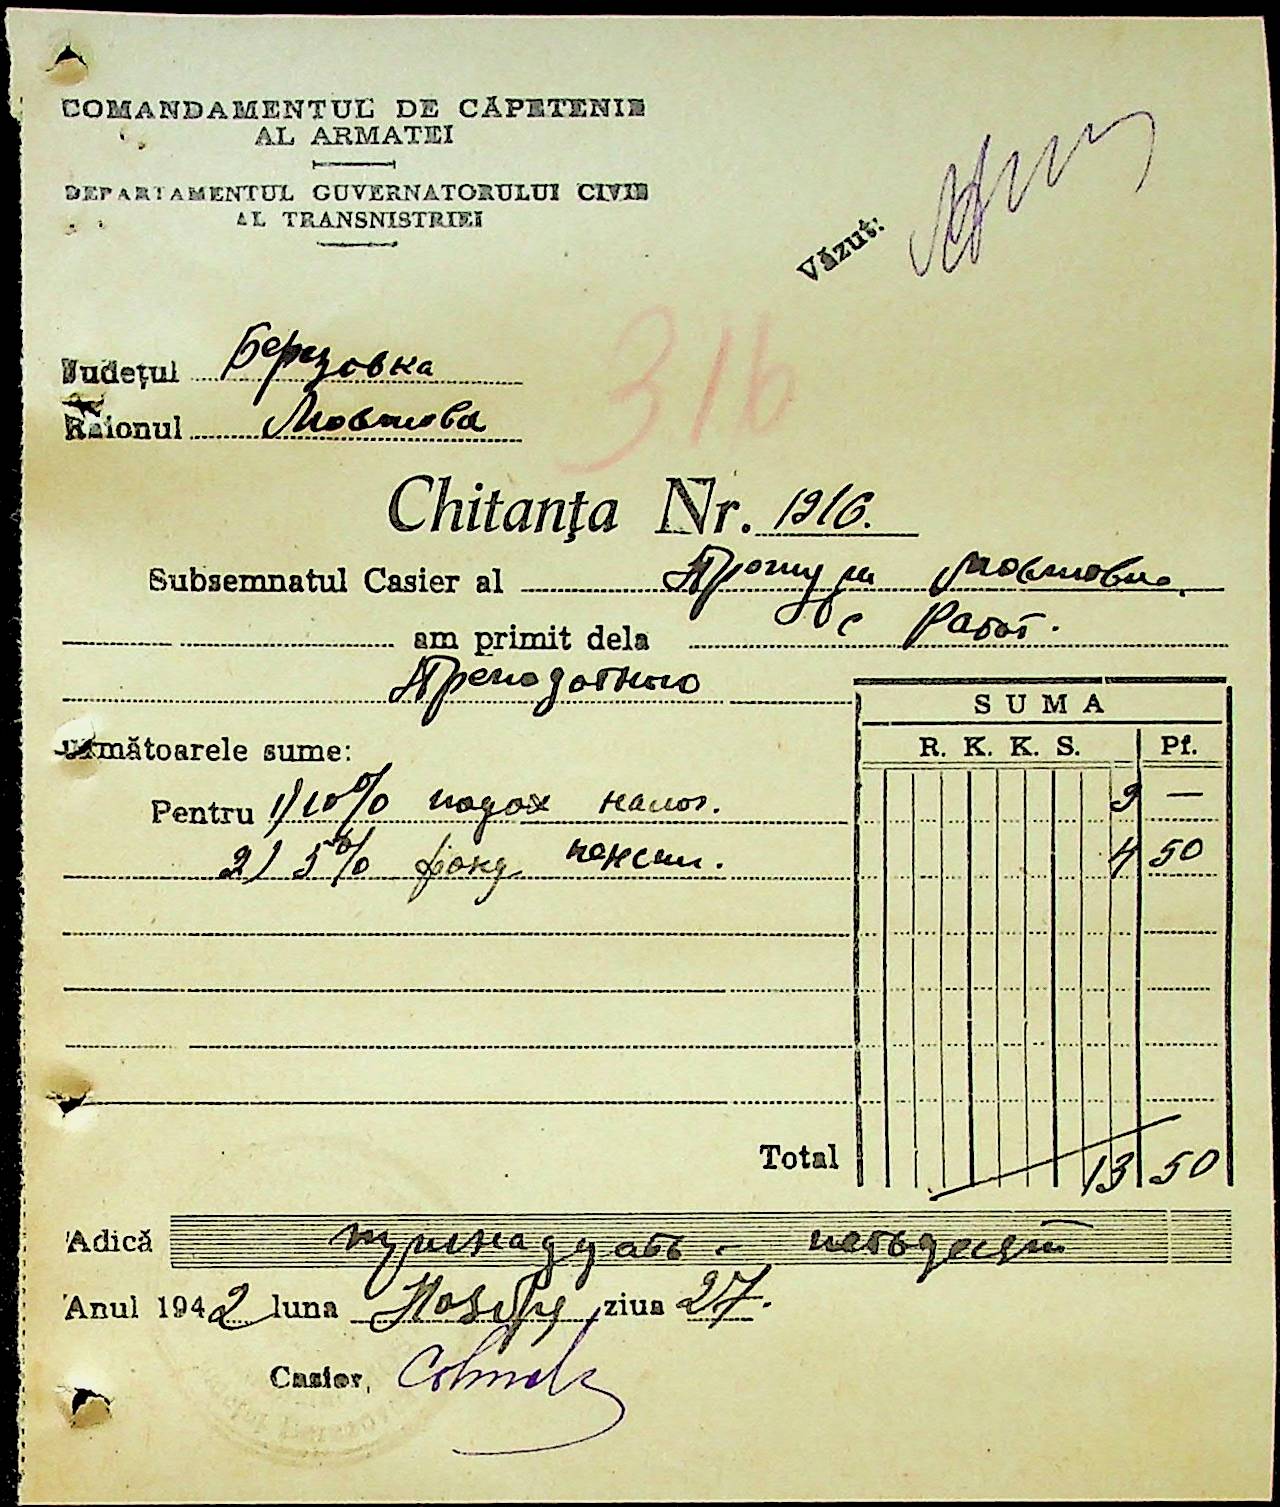 COMANDAMENTUL DE CĂPETENIE
AL ARMATEI
DEPARTAMENTUL GUVERNATORULUI CIVIL
AL TRANSNISTRIEI
Văzut:
316
Județul Березовка
Raionul
Chitanța Nr. 1916.
Subsemnatul Casier al
am primit dela с работ.
SUMA
următoarele sume:
R. K. K. S. Pf.
Pentru 1) 10% подох налог. 9 —
2) 5% фонд пенсии. 4 50
Total 13 50
Adică тринадцать - петьдесят
Anul 1942 luna Ноябр ziua 27.
Casier,